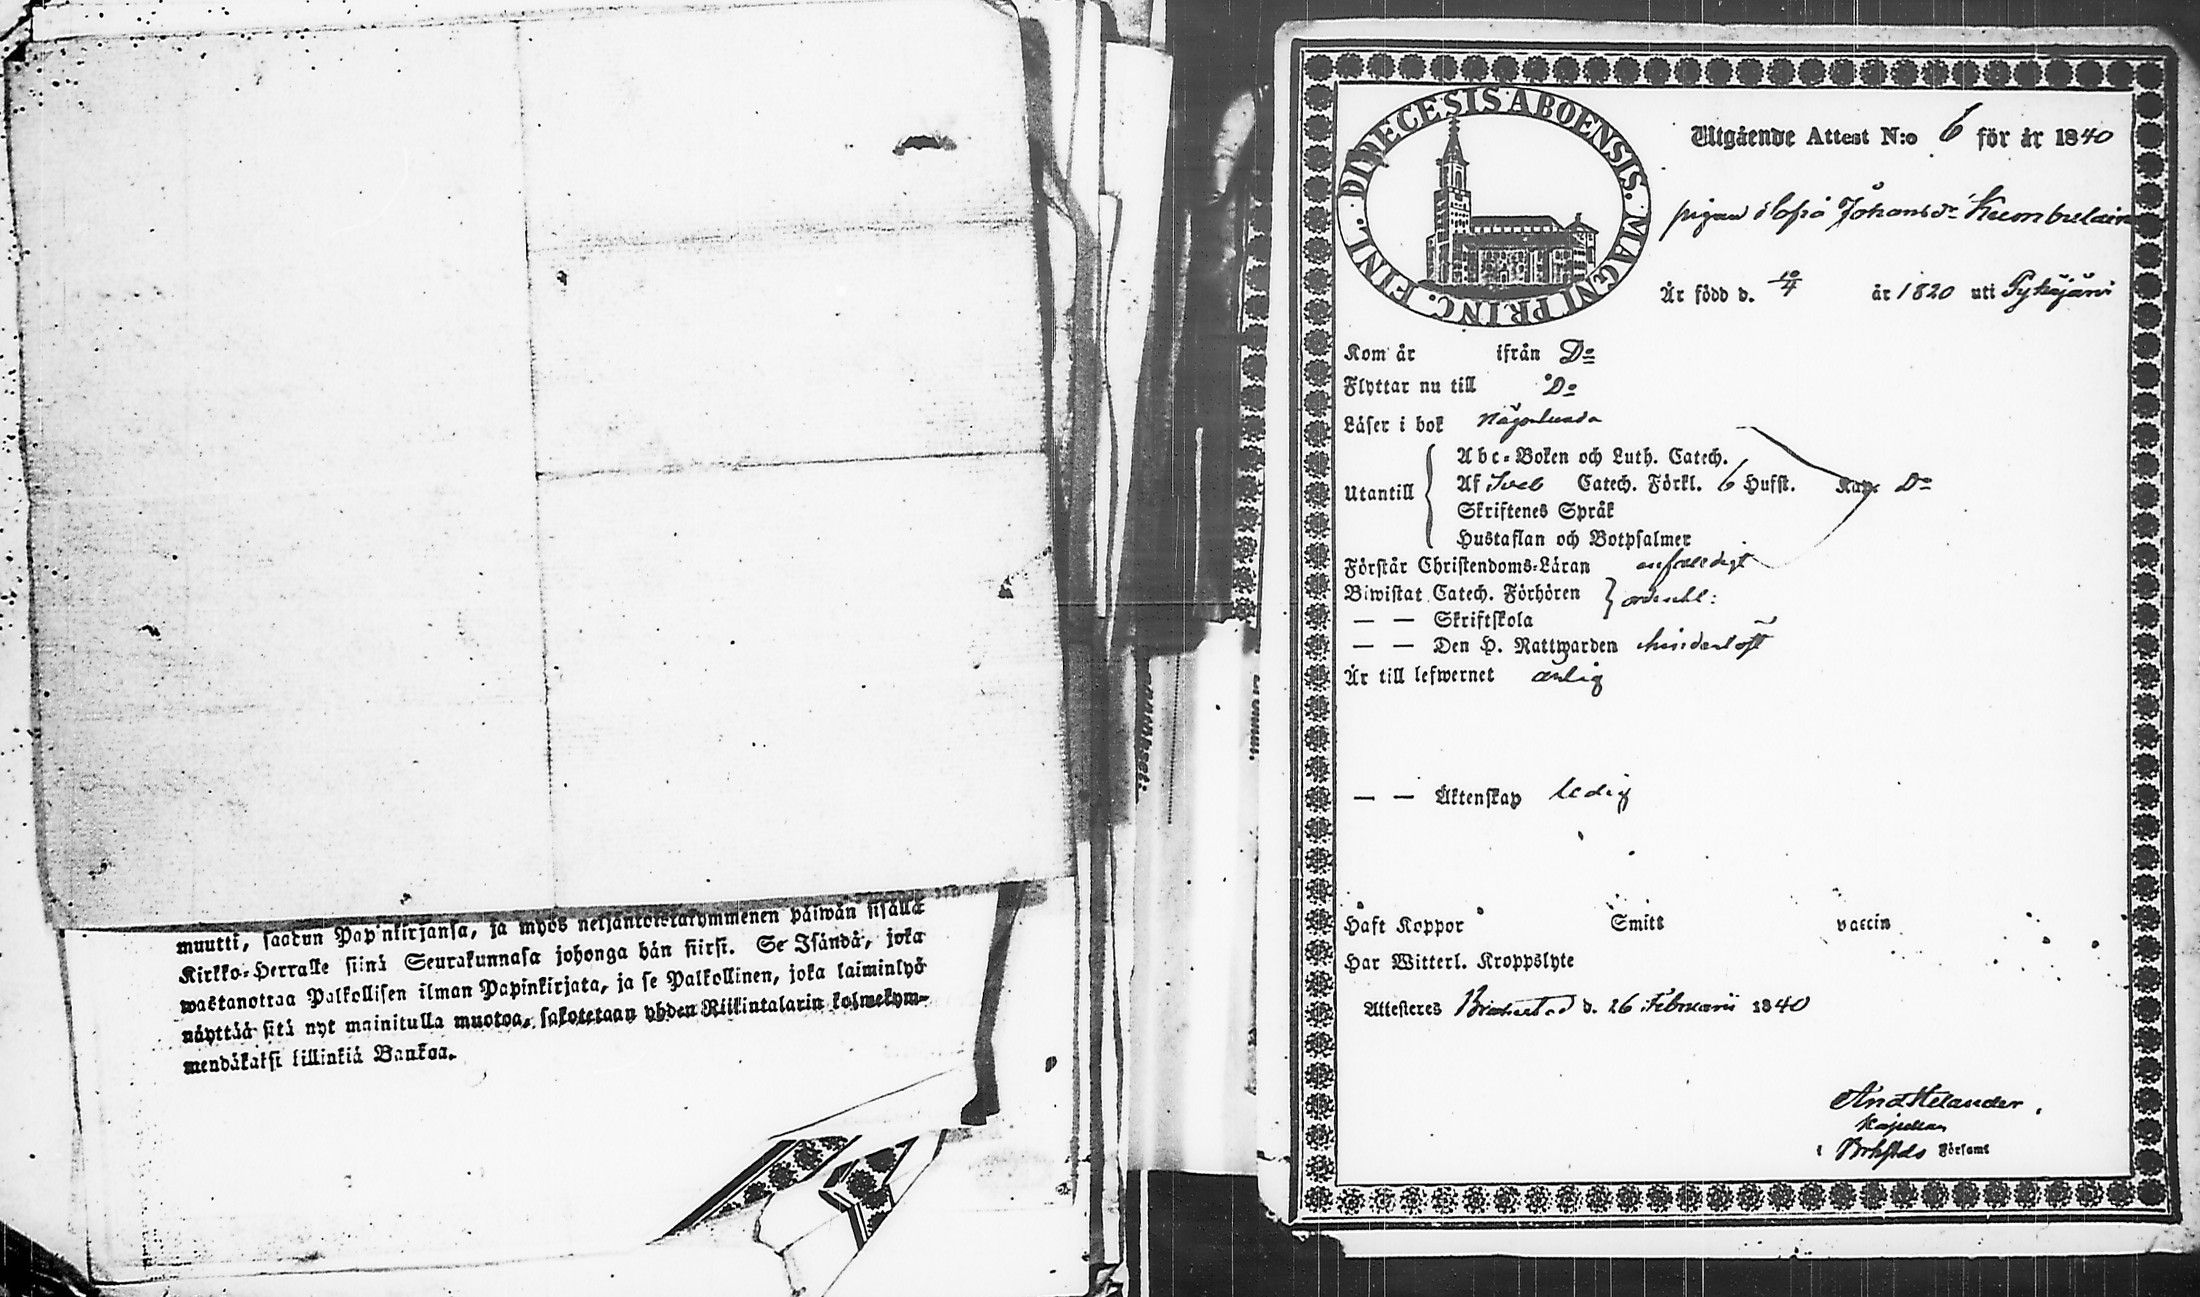 muutti, saadun Pap'nkirjansa, ja myös neljäntoistakymmenen päiwän sisällä
Kirkko-Herralle siinä Seurakunnasa johonga hän siirsi. Se Isändä, joka
wastanottaa Palkollisen ilman Papinkirjata, ja se Palkollinen, joka laiminlyö
näyttää sitä nyt mainitulla muotoa, sakotetaan yhden Riikintalarin kolmekym-
mendäkaksi killinkiä Bankoa.
DIOECESIS ABOENSIS. MAGNI PRINC. FINL.
Utgående Attest N:o 6 för år 1840
pigan Sofia Johansdr
Är född d. 10/4 år 1820 uti Pyhäjärvi
Kom år ifrån Do
Flyttar nu till Do
Läser i bok någorlunda
Utantill
Abc-Boken och Luth. Catech.
Af Sveb Catech. Förkl. 6 Hufst. Kap. Do
Skriftenes Språk
Hustaflan och Botpsalmer
Förstår Christendoms-Läran enfaldigt
Biwistat Catech. Förhören ordentl:
— — Skriftskola
— — Den H. Nattwarden hinderlöst
Är till lefwernet ärlig
— — Äktenskap ledig
Haft Koppor Smitt vaccin
Har Witterl. Kroppslyte
Attesteres Brahestad d. 26 Februarii 1840
And Helander.
Kapellan
i Brhstds Församl